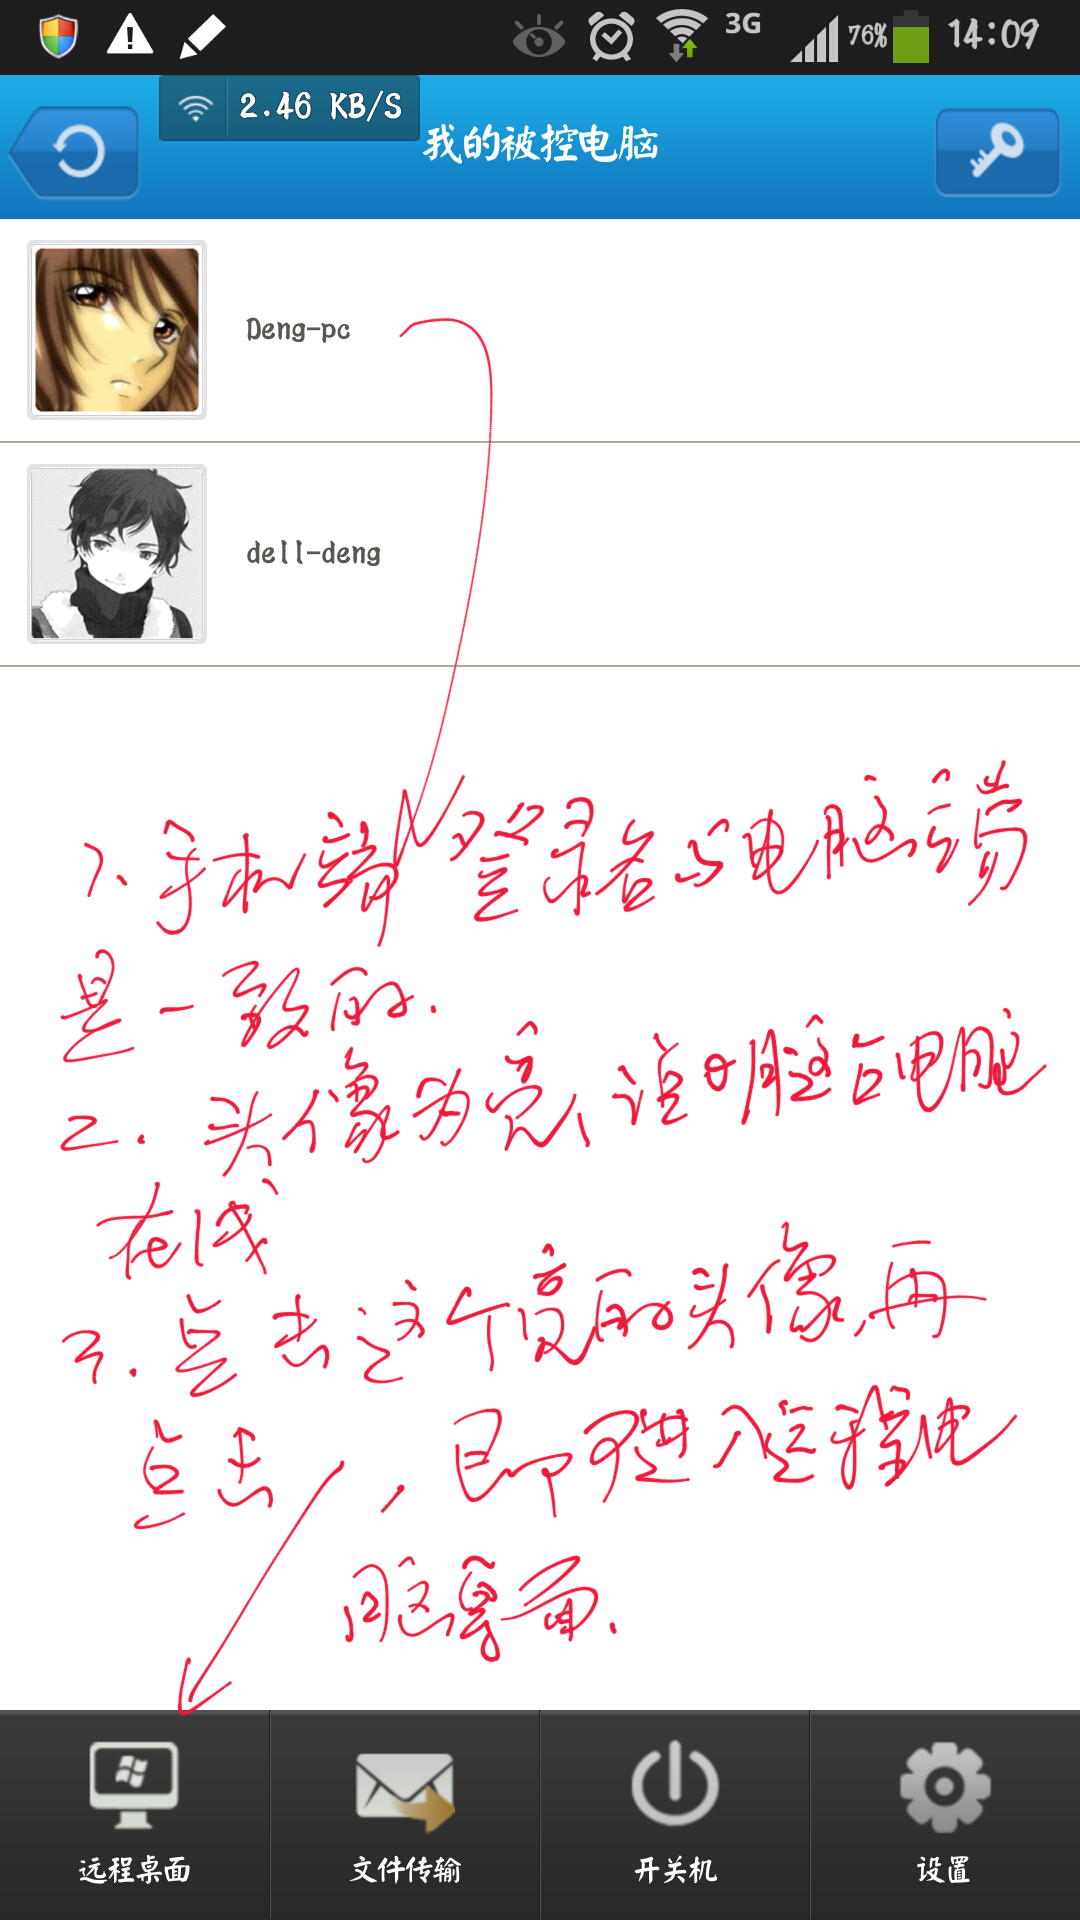 3G 76% 14:09
2.46 KB/S
我的被控电脑
Deng-pc
dell-deng
1、手机端登录名与电脑端
是一致的.
2. 头像为亮、说明这台电脑
在线
3. 点击这个亮的头像,再
点击 , 即可进入远程电
脑桌面.
远程桌面 文件传输 开关机 设置